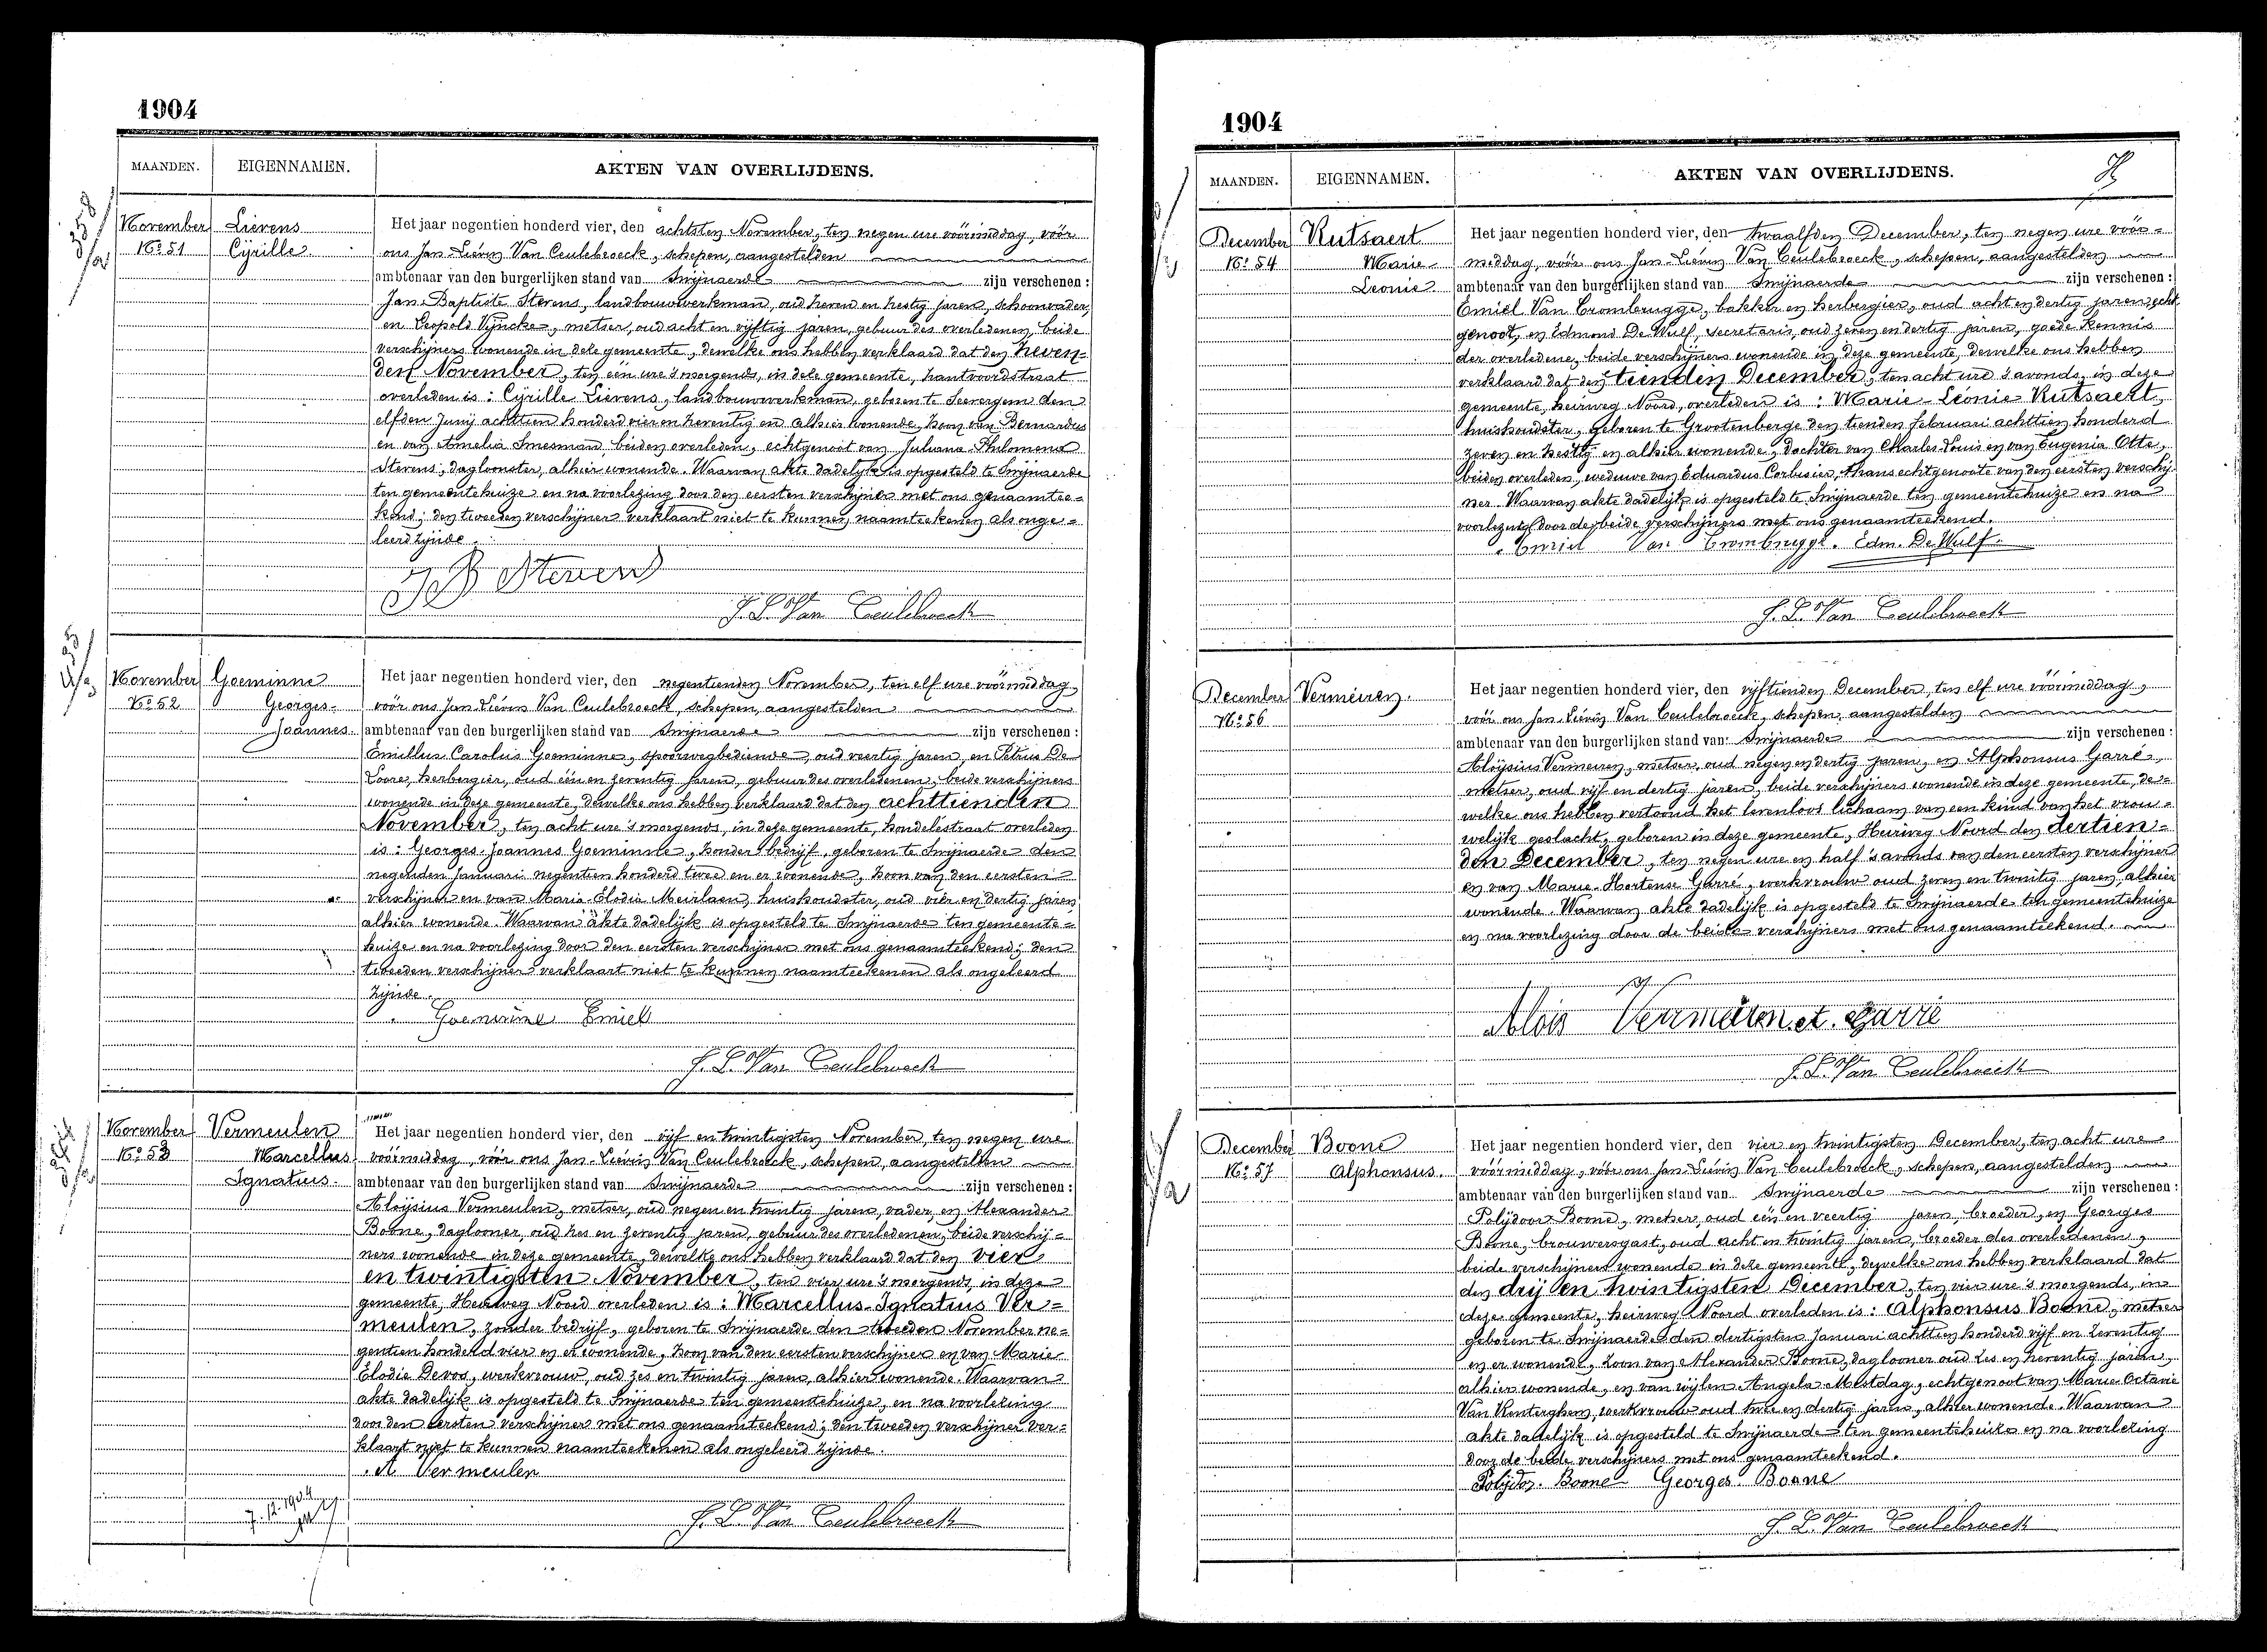 1904
MAANDEN. EIGENNAMEN. AKTEN VAN OVERLIJDENS.
November Lievens
No 51 Cÿrille
Het jaar negentien honderd vier, den achtsten November, ten negen ure vóórmiddag, vóór
ons Jan-Liévin Van Ceulebroeck, schepen, aangestelden
ambtenaar van den burgerlijken stand van Swijnaerde zijn verschenen:
Jan-Baptiste Stevens, landbouwwerkman, oud zeven en zestig jaren, schoonvader,
en Leopold Vÿncke, metser, oud acht en vijftig jaren, gebuur des overledenen, beide
verschijners wonende in deze gemeente, dewelke ons hebben verklaard dat den zeven-
den November, ten één ure 's morgends, in deze gemeente, hantvoordstraat
overleden is: Cÿrille Lievens, landbouwwerkman, geboren te Seevergem den
elfden Junij achttien honderd vier en zeventig en alhier wonende, zoon van Bernardus
en van Amelia Smesman, beiden overleden, echtgenoot van Juliana-Philomena
Stevens, dagloonster, alhier wonende. Waarvan akte dadelijk is opgesteld te Swijnaerde
ten gemeentehuize en na voorlezing door den eersten verschijner met ons genaamtee-
kend; den tweeden verschijner verklaart niet te kunnen naamteekenen als onge-
leerd zijnde.
JB Stevens
J. L. Van Ceulebroeck
November Goeminne
No 52 Georges-
Joannes
Het jaar negentien honderd vier, den negentienden November, ten elf ure vóórmiddag,
vóór ons Jan-Liévin Van Ceulebroeck, schepen, aangestelden
ambtenaar van den burgerlijken stand van Swijnaerde zijn verschenen:
Emillus Carolus Goeminne, spoorwegbediende, oud veertig jaren, en Petrus De
Loore, herbergier, oud één en zeventig jaren, gebuur des overledenen, beide verschijners
wonende in deze gemeente, dewelke ons hebben verklaard dat den achttienden
November, ten acht ure 's morgends, in deze gemeente, hondelestraat overleden
is: Georges-Joannes Goeminne, zonder bedrijf, geboren te Swijnaerde den
negenden Januari negentien honderd twee en er wonende, zoon van den eersten
verschijner en van Maria-Elodie Meirlaen, huishoudster, oud vier en dertig jaren,
alhier wonende. Waarvan akte dadelijk is opgesteld te Swijnaerde ten gemeente-
huize en na voorlezing door den eersten verschijner met ons genaamteekend; den
tweeden verschijner verklaart niet te kunnen naamteekenen als ongeleerd
zijnde.
Goeminne Emiel
J. L. Van Ceulebroeck
November Vermeulen
No 53 Marcellus
Ignatius
Het jaar negentien honderd vier, den vijf en twintigsten November, ten negen ure
vóórmiddag, vóór ons Jan-Liévin Van Ceulebroeck, schepen, aangestelden
ambtenaar van den burgerlijken stand van Swijnaerde zijn verschenen:
Aloijsius Vermeulen, metser, oud negen en twintig jaren, vader, en Alexander
Boone, daglooner, oud zes en zeventig jaren, gebuur des overledenen, beide verschij-
ners wonende in deze gemeente, dewelke ons hebben verklaard dat den vier
en twintigsten November, ten vier ure 's morgends, in deze
gemeente, Heirweg Noord overleden is: Marcellus-Ignatius Ver-
meulen, zonder bedrijf, geboren te Swijnaerde den tweeden November ne-
gentien honderd vier en er wonende, zoon van den eersten verschijner en van Marie
Elodie Devos, werkvrouw, oud zes en twintig jaren, alhier wonende. Waarvan
akte dadelijk is opgesteld te Swijnaerde ten gemeentehuize, en na voorlezing
door den eersten verschijner met ons genaamteekend; den tweeden verschijner ver-
klaart niet te kunnen naamteekenen als ongeleerd zijnde.
A Vermeulen
7.12.1904
J. L. Van Ceulebroeck
1904
MAANDEN. EIGENNAMEN. AKTEN VAN OVERLIJDENS.
December Rutsaert
No 54 Marie-
Leonie
Het jaar negentien honderd vier, den twaalfden December, ten negen ure vóór-
middag, vóór ons Jan-Liévin Van Ceulebroeck, schepen, aangestelden
ambtenaar van den burgerlijken stand van Swijnaerde zijn verschenen:
Emiel Van Crombrugge, bakker en herbergier, oud acht en dertig jaren, echt
genoot, en Edmond De Wulf, secretaris, oud zeven en dertig jaren, goede kennis
der overledene, beide verschijners wonende in deze gemeente, dewelke ons hebben
verklaard dat den tienden December, ten acht ure 's avonds, in deze
gemeente, heirweg Noord, overleden is: Marie-Léonie Rutsaert,
huishoudster, geboren te Grootenberge den tienden februari achttien honderd
zeven en zestig en alhier wonende, dochter van Charles-Louis en van Eugenia Otte,
beiden overleden, weduwe van Eduardus Corbisier, thans echtgenoote van den eersten verschij-
ner. Waarvan akte dadelijk is opgesteld te Swijnaerde ten gemeentehuize en na
voorlezing door de beide verschijners met ons genaamteekend.
Emiel Van Crombrugge. Edm. De Wulf.
J. L. Van Ceulebroeck
December Vermeiren.
No 56
Het jaar negentien honderd vier, den vijftienden December, ten elf ure vóórmiddag,
vóór ons Jan-Liévin Van Ceulebroeck, schepen, aangestelden
ambtenaar van den burgerlijken stand van Swijnaerde zijn verschenen:
Aloÿsius Vermeiren, metser, oud negen en dertig jaren, en Alphonsus Garré,
metser, oud vijf en dertig jaren, beide verschijners wonende in deze gemeente, de-
welke ons hebben vertoond het levenloos lichaam van een kind van het vrou-
welijk geslacht, geboren in deze gemeente, Heirweg Noord den dertien-
den December, ten negen ure en half 's avonds van den eersten verschijner
en van Marie-Hortense Garré, werkvrouw oud zeven en twintig jaren, alhier
wonende. Waarvan akte dadelijk is opgesteld te Swijnaerde ten gemeentehuize
en na voorlezing door de beide verschijners met ons genaamteekend.
Alois Vermeiren et. Garré
J. L. Van Ceulebroeck
December Boone
No 57 Alphonsus.
Het jaar negentien honderd vier, den vier en twintigsten December, ten acht ure
vóórmiddag, vóór ons Jan-Liévin Van Ceulebroeck, schepen, aangestelden
ambtenaar van den burgerlijken stand van Swijnaerde zijn verschenen:
Polijdoor Boone, metser, oud één en veertig jaren, broeder, en Georges
Boone, brouwersgast, oud acht en twintig jaren, broeder des overledenen,
beide verschijners wonende in deze gemeente, dewelke ons hebben verklaard dat
den drij en twintigsten December, ten vier ure 's morgends, in
deze gemeente, heirweg Noord overleden is: Alphonsus Boone, metser
geboren te Swijnaerde den dertigsten Januari achttien honderd vijf en zeventig
en er wonende, zoon van Alexander Boone, daglooner oud zes en zeventig jaren,
alhier wonende, en van wijlen Angela Mestdag, echtgenoot van Marie Octavie
Van Kinterghem, werkvrouw oud twee en dertig jaren, alhier wonende. Waarvan
akte dadelijk is opgesteld te Swijnaerde ten gemeentehuize en na voorlezing
door de beide verschijners met ons genaamteekend.
Polijdor. Boone Georges. Boone
J. L. Van Ceulebroeck